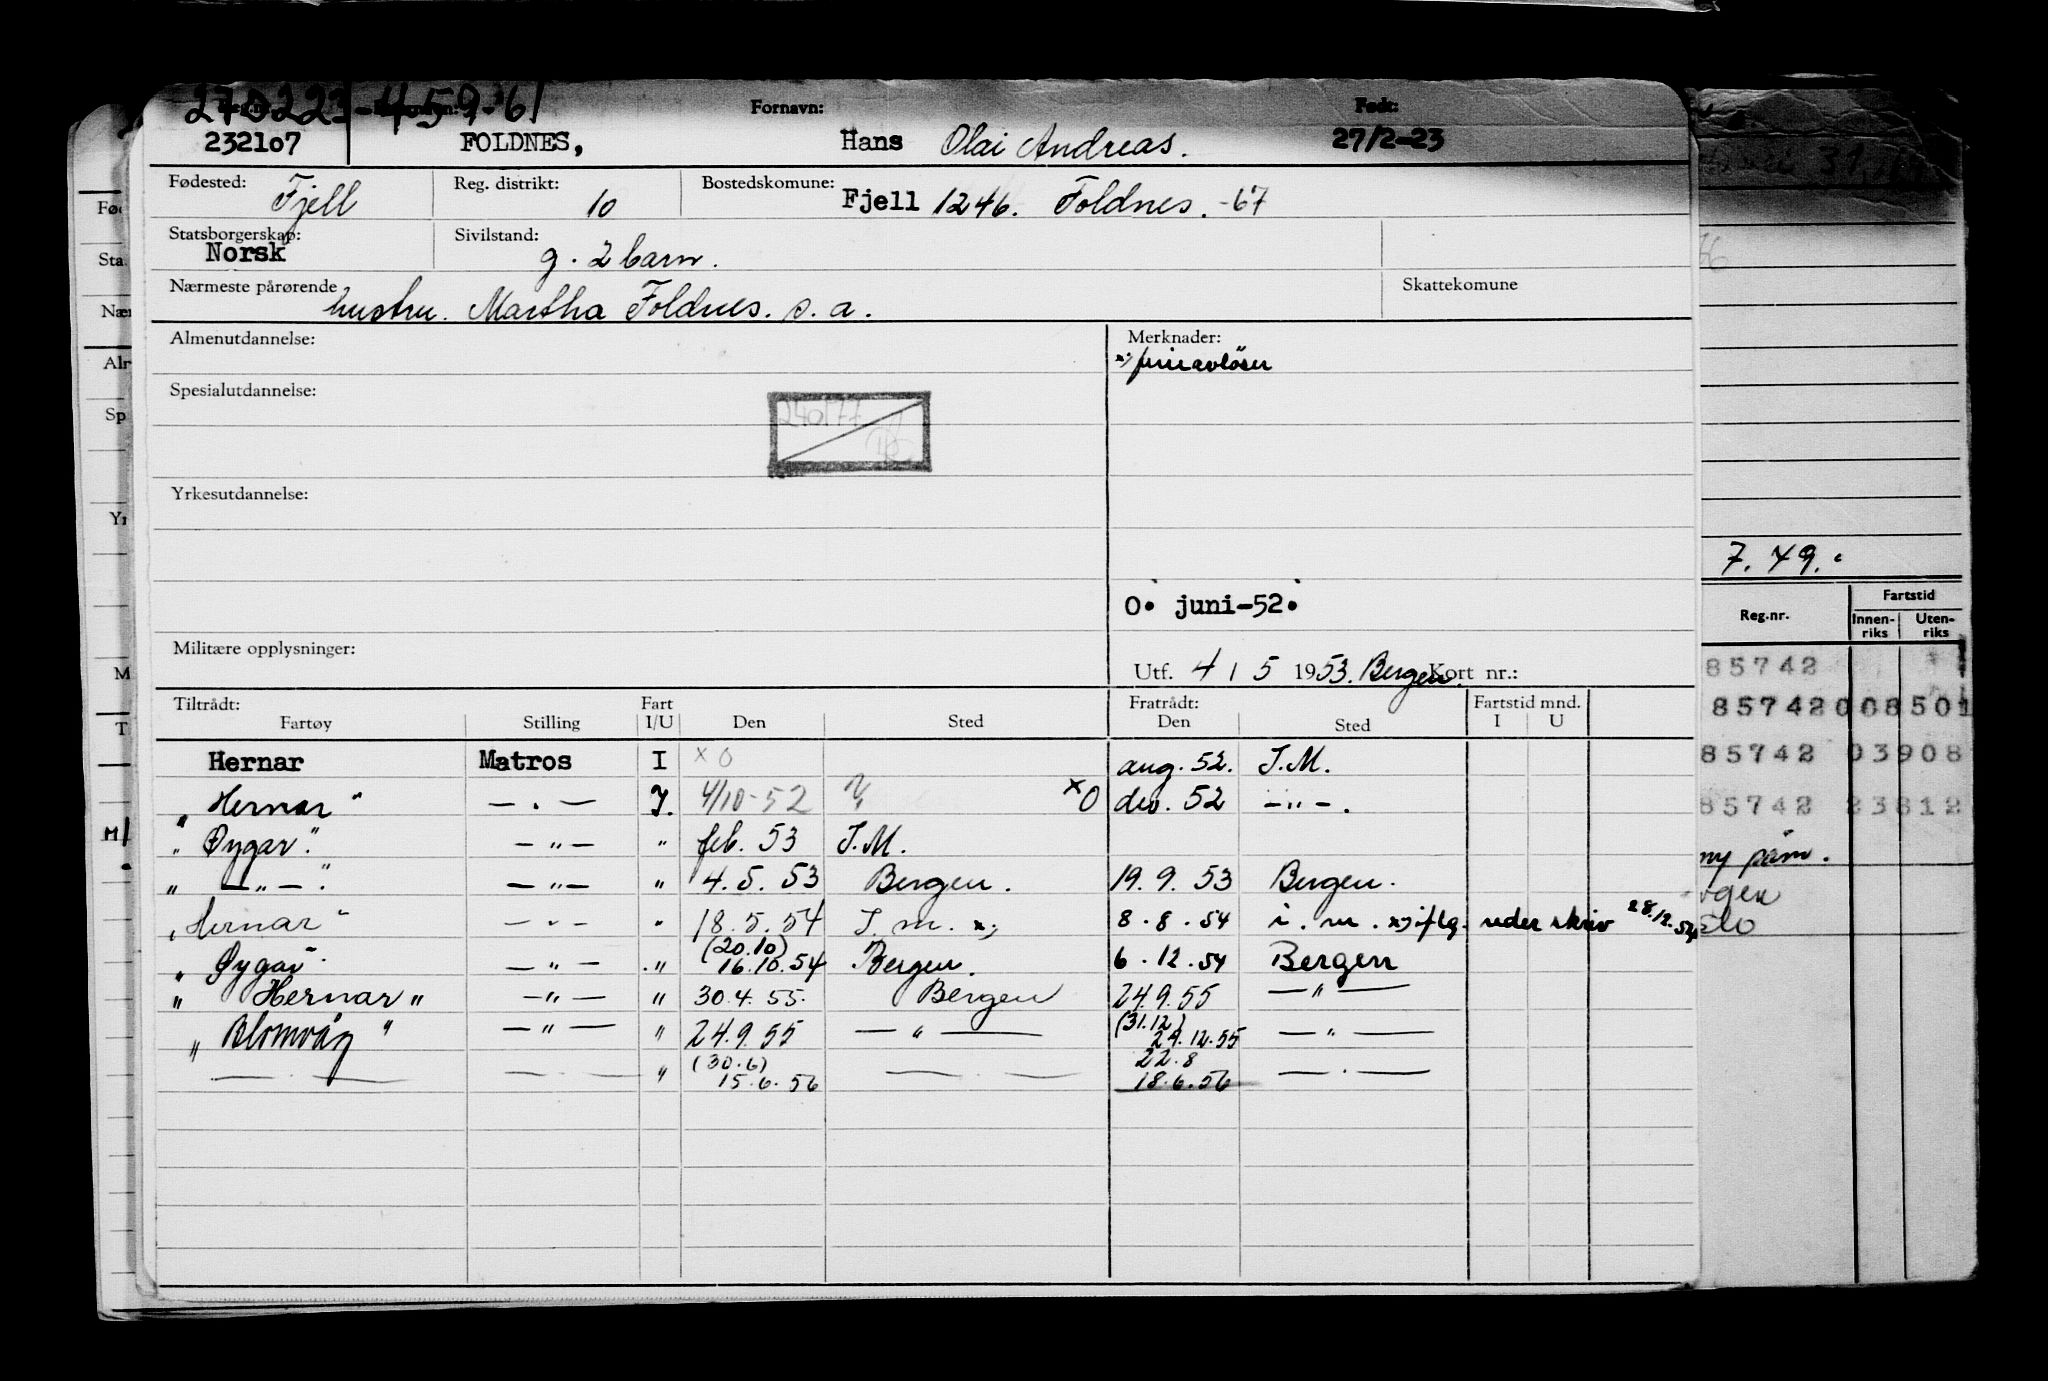 270223-459-61
Fornavn: Født:
232107 FOLDNES, Hans Olai Andreas. 27/2-23
Fødested: Fjell Reg. distrikt: 10 Bostedskomune: Fjell 1246. Foldnes. -67
Statsborgerskap: Norsk Sivilstand: g. 2 barn.
Nærmeste pårørende hustru. Martha Foldnes. s. a. Skattekomune
Almenutdannelse: Merknader:
x) ferieavløser
Spesialutdannelse:
240177
Yrkesutdannelse:
O. juni-52.
Militære opplysninger:
Utf. 4 / 5 1953. Bergen. Kort nr.:
Tiltrådt: Fart Fratrådt: Fartstid mnd.
Fartøy Stilling I/U Den Sted Den Sted I U
Hernar Matros I x O aug. 52. I.M.
"Hernar" — . — I. 4/10-52 x O des. 52 — " — .
"Øygar". — " — " feb. 53 I.M.
" — " — ". — " — " 4. 5. 53 Bergen. 19. 9. 53 Bergen.
"Hernar" — " — " 18. 5. 54 I. m. x) 8. 8. 54 i. m. x) iflg. reder skriv 28.12.54
"Øygar" — " — " (20.10) 16.10.54 Bergen. 6. 12. 54 Bergen
"Hernar" — " — " 30. 4. 55. Bergen 24. 9. 55 — " —
"Blomvåg" — " — " 24. 9. 55 — " — (31.12) 24. 12. 55 — " —
— . — — . — " (30.6) 15. 6. 56 — . — 22. 8 18. 6. 56 — . —
7. 49.
Reg.nr. Fartstid
Innen-riks Uten-riks
85742
85742 008501
85742 03908
85742 23812
ny påm.
Fø
Sta
Nær
Alr
Sp
Yr
M
T
M